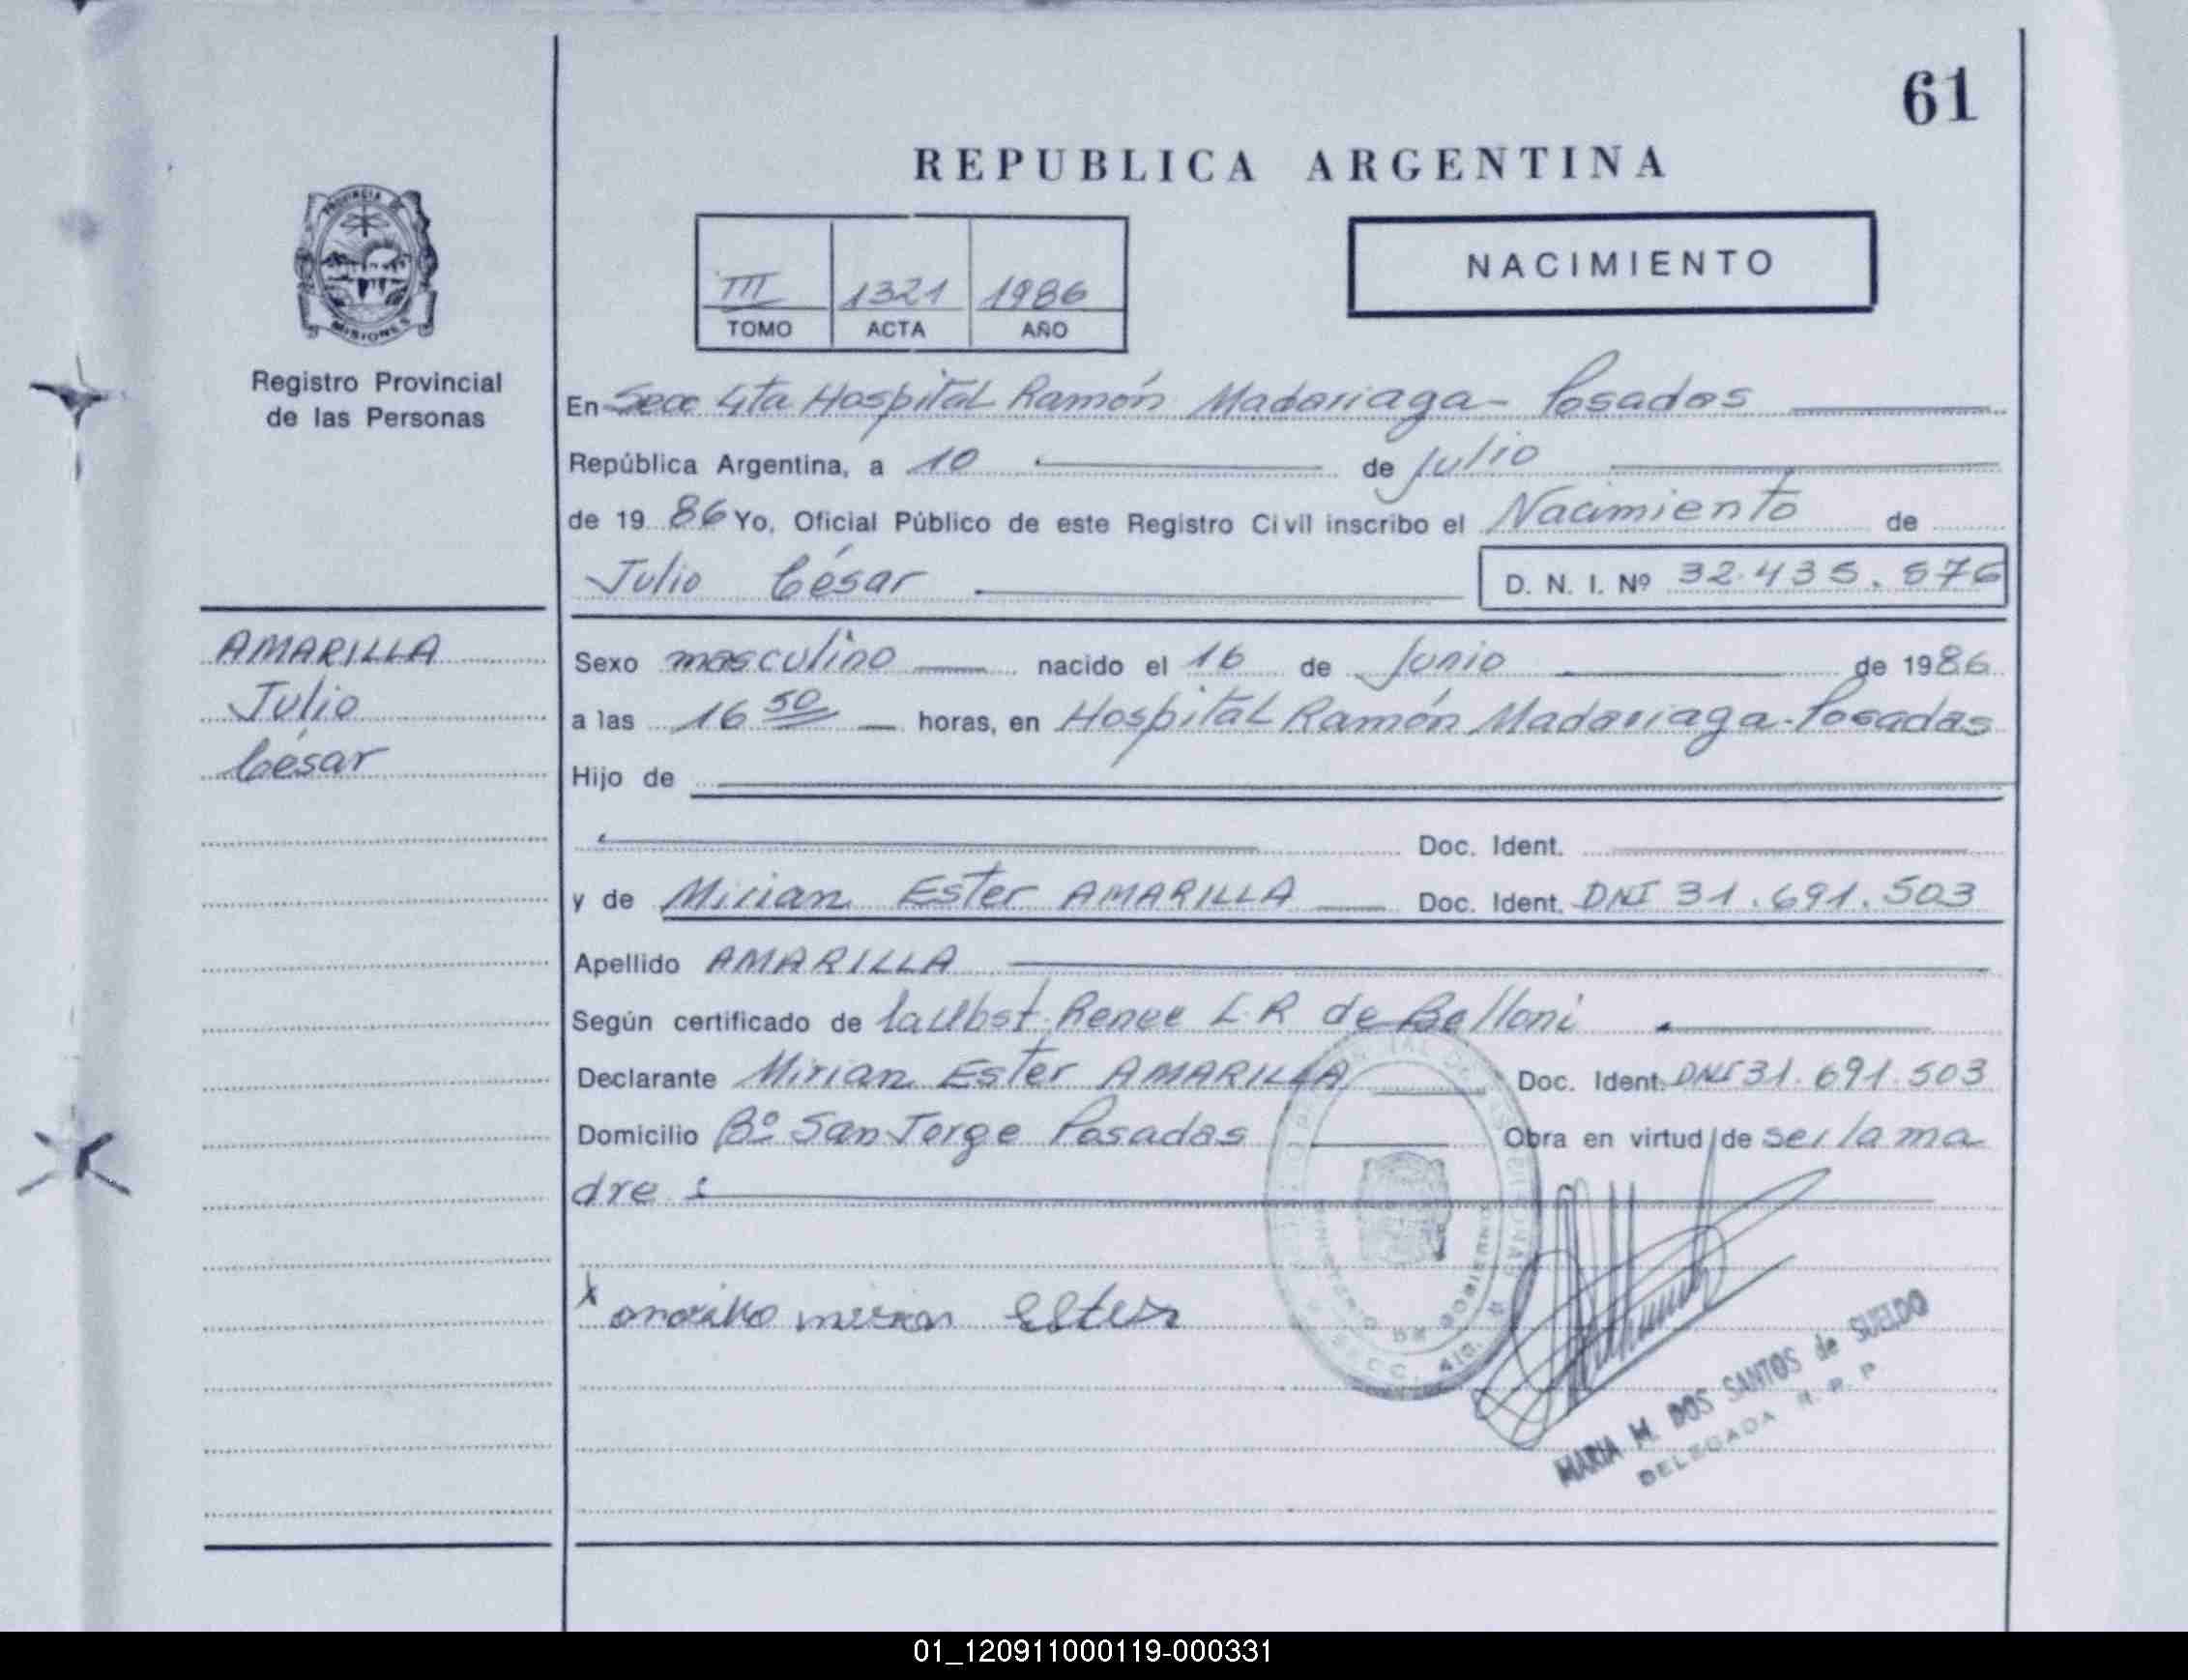 61
REPUBLICA ARGENTINA
PROVINCIA DE
MISIONES
Registro Provincial
de las Personas
III 1321 1986
TOMO ACTA AÑO
NACIMIENTO
En Secc 4ta Hospital Ramón Madariaga - Posadas
República Argentina, a 10 de Julio
de 1986 Yo, Oficial Público de este Registro Civil inscribo el Nacimiento de
Julio César D. N. I. Nº 32.435.576
AMARILLA
Julio
César
Sexo masculino nacido el 16 de Junio de 1986
a las 16 50 horas, en Hospital Ramón Madariaga - Posadas
Hijo de
Doc. Ident.
y de Mirian Ester AMARILLA Doc. Ident. DNI 31.691.503
Apellido AMARILLA
Según certificado de la Obst. Renee L R de Belloni
Declarante Mirian Ester AMARILLA Doc. Ident. DNI 31.691.503
Domicilio Bº San Jorge Posadas Obra en virtud de ser la ma
dre
x amarilla mirian Ester
MARIA M. DOS SANTOS de SUELDO
DELEGADA R. P. P
01_120911000119-000331